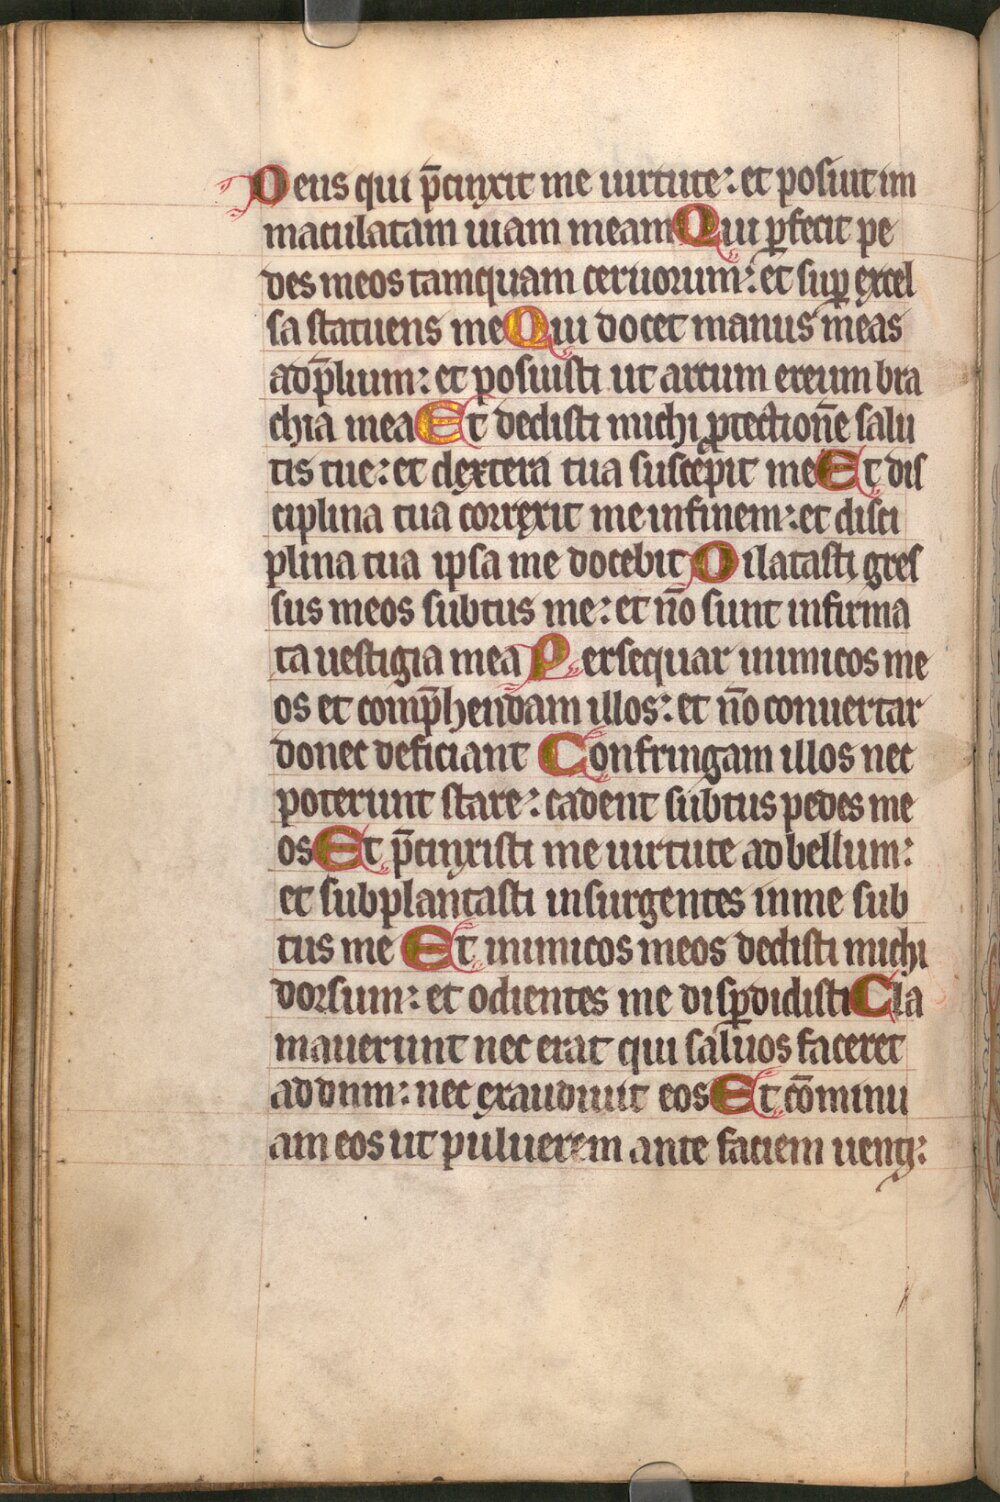 Deus qui p̄cinxit me uirtute: et posuit im
maculatam uiam meam Qui ꝑfecit pe
des meos tamquam ceruorum: et suꝑ excel
sa statuens me Qui docet manus meas
ad p̄lium: et posuisti ut arcum ereum bra
chia mea Et dedisti michi ꝓtectionē salu
tis tue: et dextera tua suscepit me Et dis
ciplina tua correxit me in finem: et disci
plina tua ipsa me docebit Dilatasti gres
sus meos subtus me: et nō sunt infirma
ta uestigia mea Persequar inimicos me
os et comp̄hendam illos: et nō conuertar
donec deficiant Confringam illos nec
poterunt stare: cadent subtus pedes me
os Et p̄cinxisti me uirtute ad bellum:
et subplantasti insurgentes in me sub
tus me Et inimicos meos dedisti michi
dorsum: et odientes me disꝑdidisti Cla
mauerunt nec erat qui saluos faceret
ad dnm: nec exaudiuit eos Et cōminu
am eos ut puluerem ante faciem uenti: